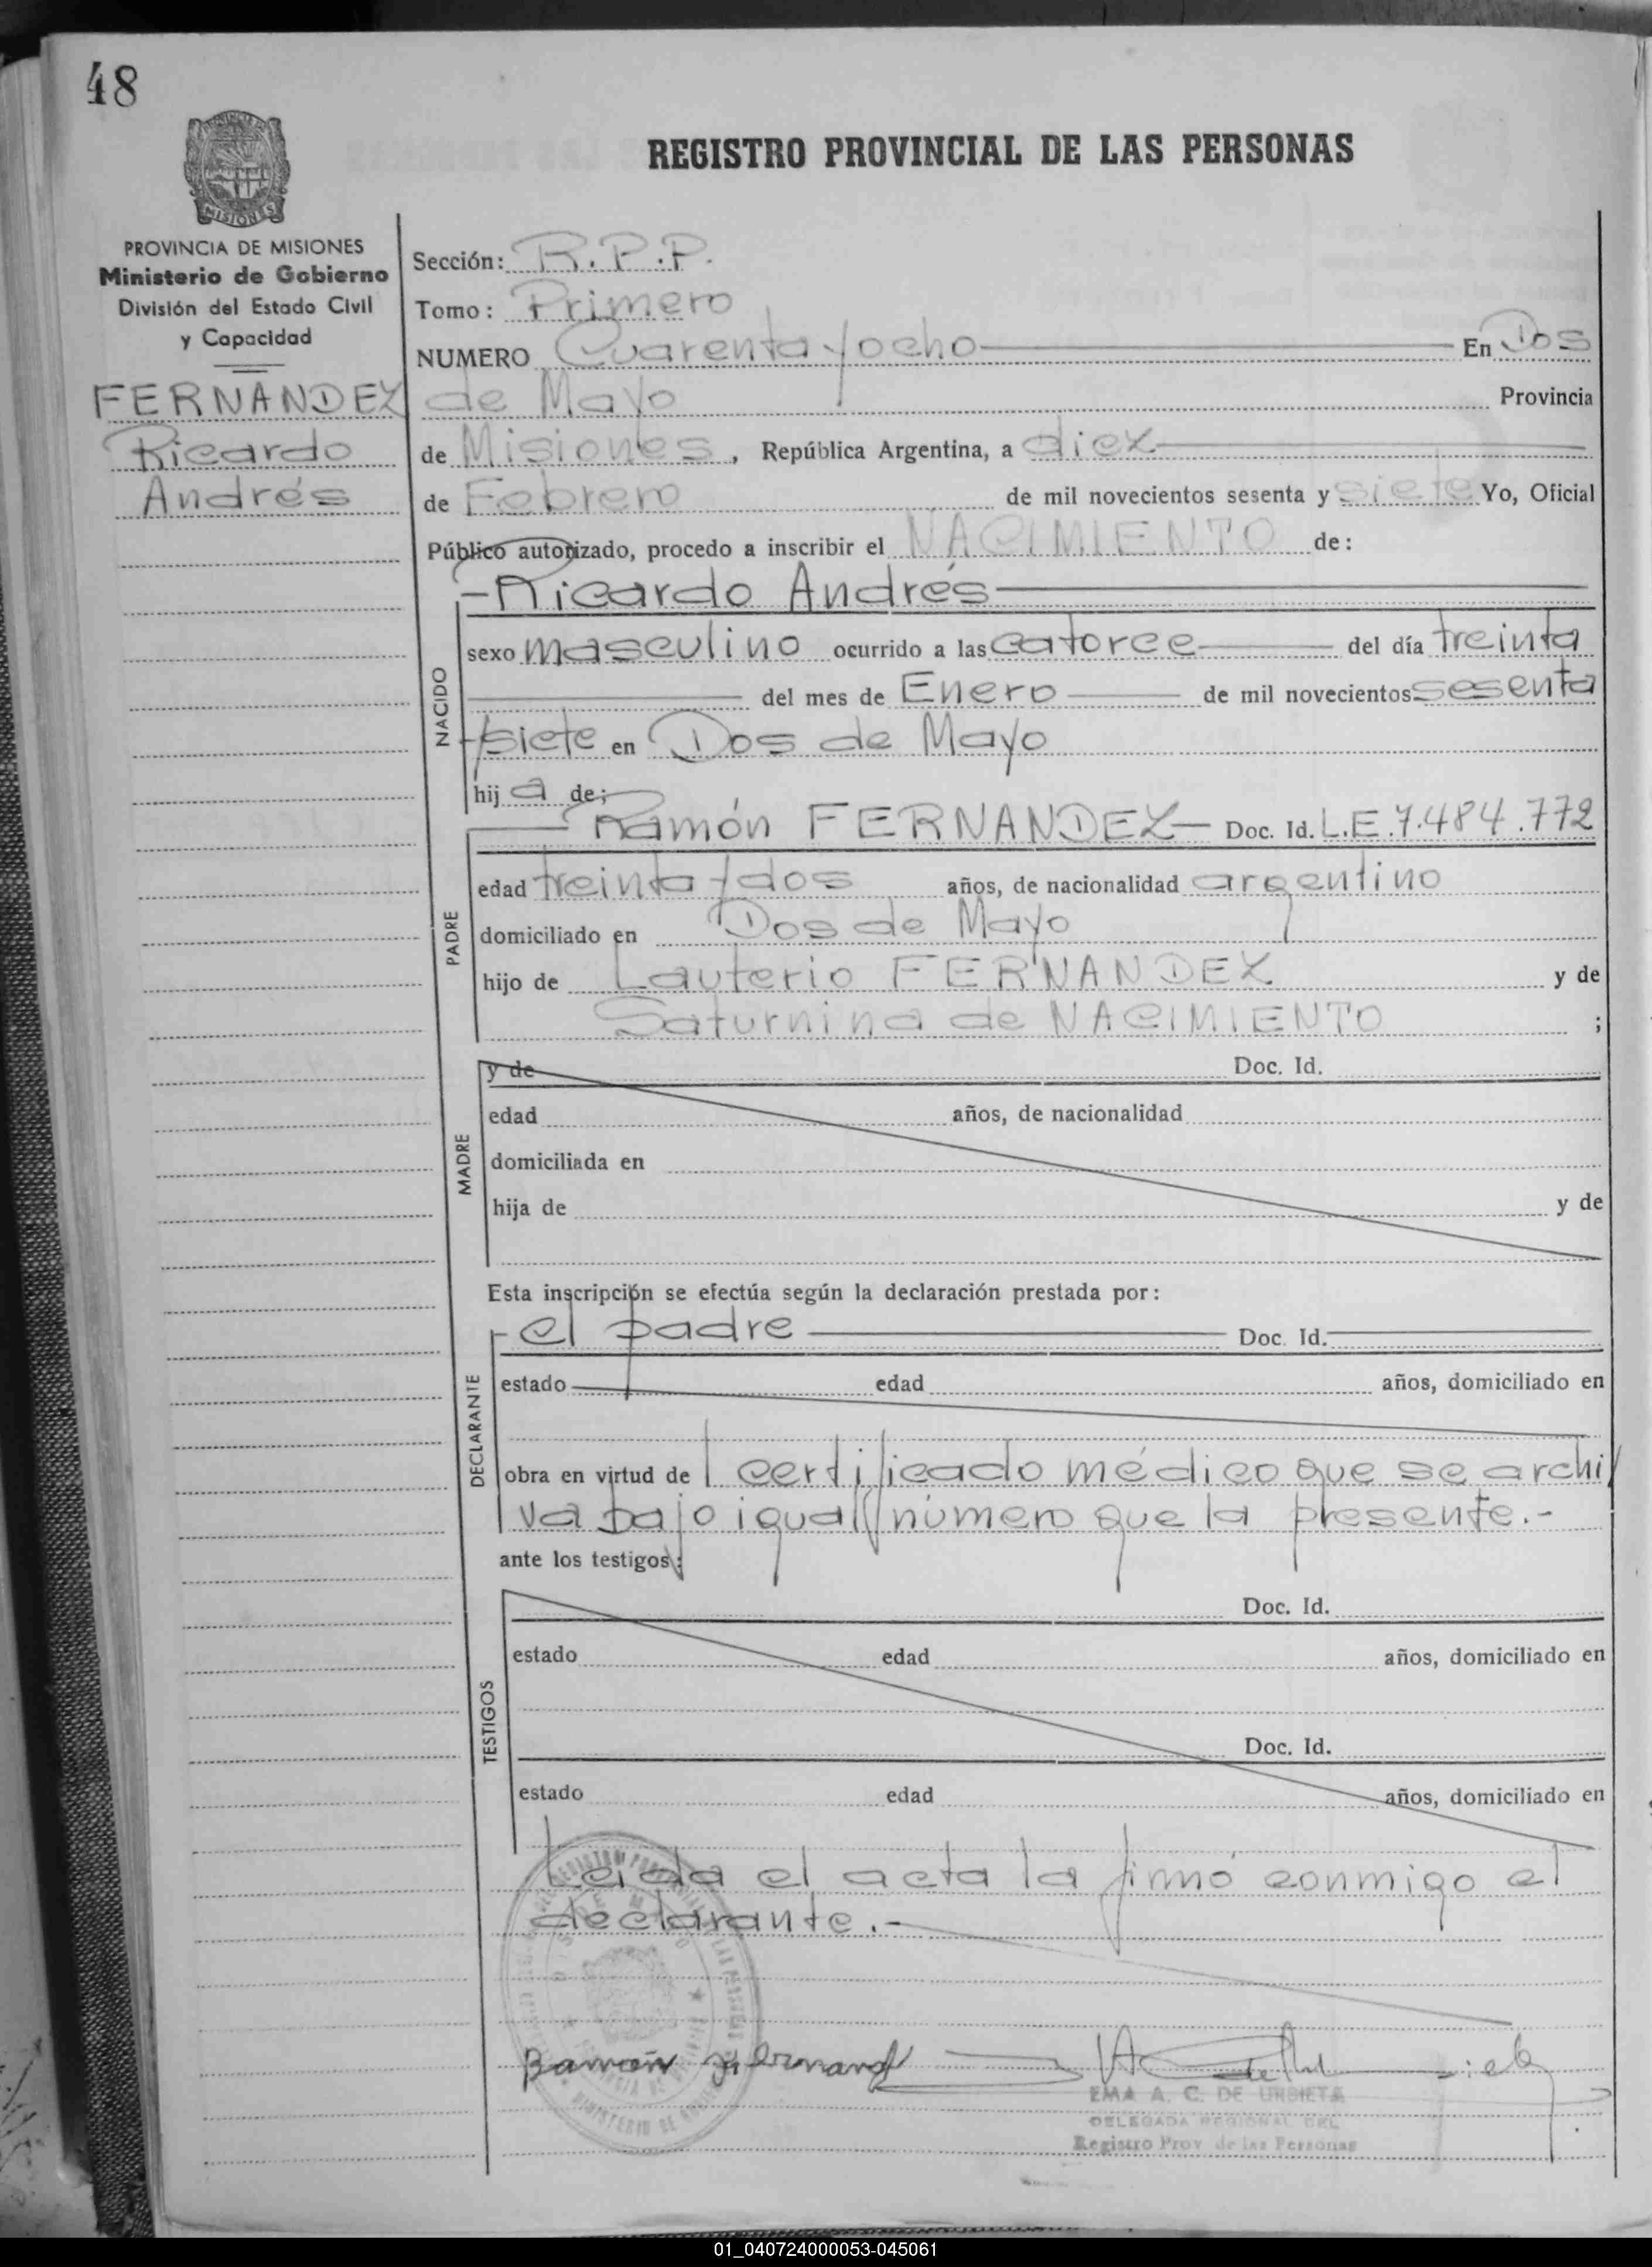 48
REGISTRO PROVINCIAL DE LAS PERSONAS
MISIONES
PROVINCIA DE MISIONES
Ministerio de Gobierno
División del Estado Civil
y Capacidad
FERNANDEZ
Ricardo
Andrés
Sección: R.P.P.
Tomo: Primero
NUMERO Cuarenta y ocho En Dos
de Mayo Provincia
de Misiones, República Argentina, a diez
de Febrero de mil novecientos sesenta y siete Yo, Oficial
Público autorizado, procedo a inscribir el NACIMIENTO de:
NACIDO
- Ricardo Andrés
sexo masculino ocurrido a las catorce del día treinta
del mes de Enero de mil novecientos sesenta
y siete en Dos de Mayo
hij a de:
PADRE
Ramón FERNANDEZ - Doc. Id. L.E.7.484.772
edad treinta y dos años, de nacionalidad argentino
domiciliado en Dos de Mayo
hijo de Lauterio FERNANDEZ y de
Saturnina de NACIMIENTO ;
MADRE
y de Doc. Id.
edad años, de nacionalidad
domiciliada en
hija de y de
Esta inscripción se efectúa según la declaración prestada por:
DECLARANTE
- el padre Doc. Id.
estado edad años, domiciliado en
obra en virtud de l certificado médico que se archi/
va bajo igual número que la presente.-
ante los testigos:
TESTIGOS
Doc. Id.
estado edad años, domiciliado en
Doc. Id.
estado edad años, domiciliado en
Leida el acta la firmó conmigo el
declarante.-
EMA A. C. DE URBIETA
DELEGADA REGIONAL DEL
Registro Prov de las Personas
01_040724000053-045061